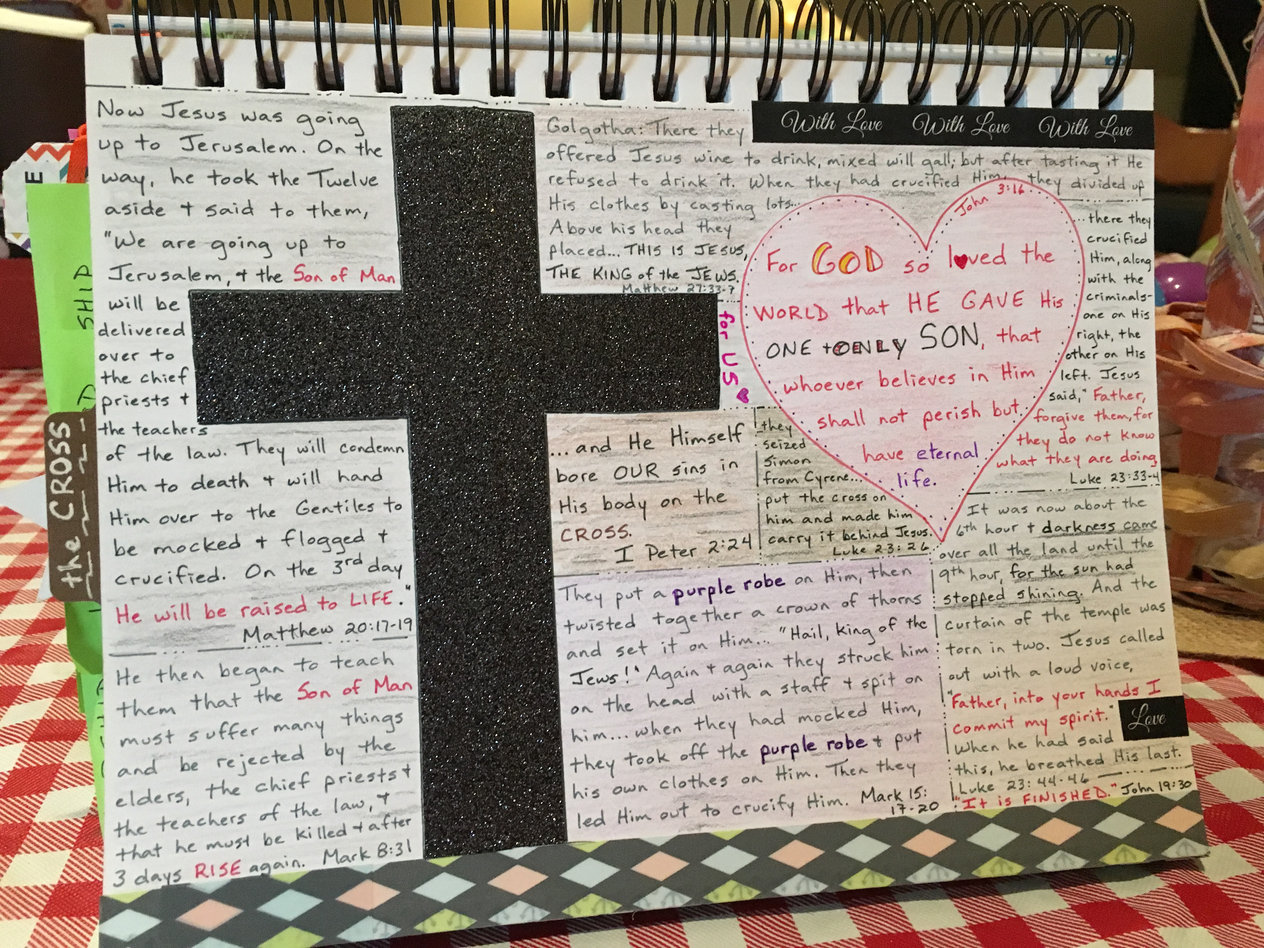 Now Jesus was going
up to Jerusalem. On the
way, he took the Twelve
aside + said to them,
"We are going up to
Jerusalem, + the Son of Man
will be
delivered
over to
the chief
priests +
the teachers
of the law. They will condemn
Him to death + will hand
Him over to the Gentiles to
be mocked + flogged +
crucified. On the 3rd day
He will be raised to LIFE."
Matthew 20:17-19
He then began to teach
them that the Son of Man
must suffer many things
and be rejected by the
elders, the chief priests +
the teachers of the law, +
that he must be killed + after
3 days RISE again. Mark 8:31
Golgotha: There they
offered Jesus wine to drink, mixed will gall; but after tasting it He
refused to drink it. When they had crucified Him, they divided up
His clothes by casting lots...
Above his head they
placed... THIS IS JESUS,
THE KING of the JEWS.
Matthew 27:33-7
With Love With Love With Love
for US
John 3:16
For GOD so loved the
WORLD that HE GAVE His
ONE + ONLY SON, that
whoever believes in Him
shall not perish but
have eternal
life.
...there they
crucified
Him, along
with the
criminals-
one on His
right, the
other on His
left. Jesus
said, "Father,
forgive them, for
they do not know
what they are doing
Luke 23:33-4
...and He Himself
bore OUR sins in
His body on the
CROSS.
I Peter 2:24
they
seized
Simon
from Cyrene...
put the cross on
him and made him
carry it behind Jesus.
Luke 23:26
They put a purple robe on Him, then
twisted together a crown of thorns
and set it on Him... "Hail, king of the
Jews!" Again + again they struck him
on the head with a staff + spit on
him... when they had mocked Him,
they took off the purple robe + put
his own clothes on Him. Then they
led Him out to crucify Him. Mark 15:
17-20
It was now about the
6th hour + darkness came
over all the land until the
9th hour, for the sun had
stopped shining. And the
curtain of the temple was
torn in two. Jesus called
out with a loud voice,
"Father, into your hands I
commit my spirit."
When he had said
this, he breathed His last.
Luke 23:44-46
"It is FINISHED." John 19:30
Love
the CROSS
SHIP